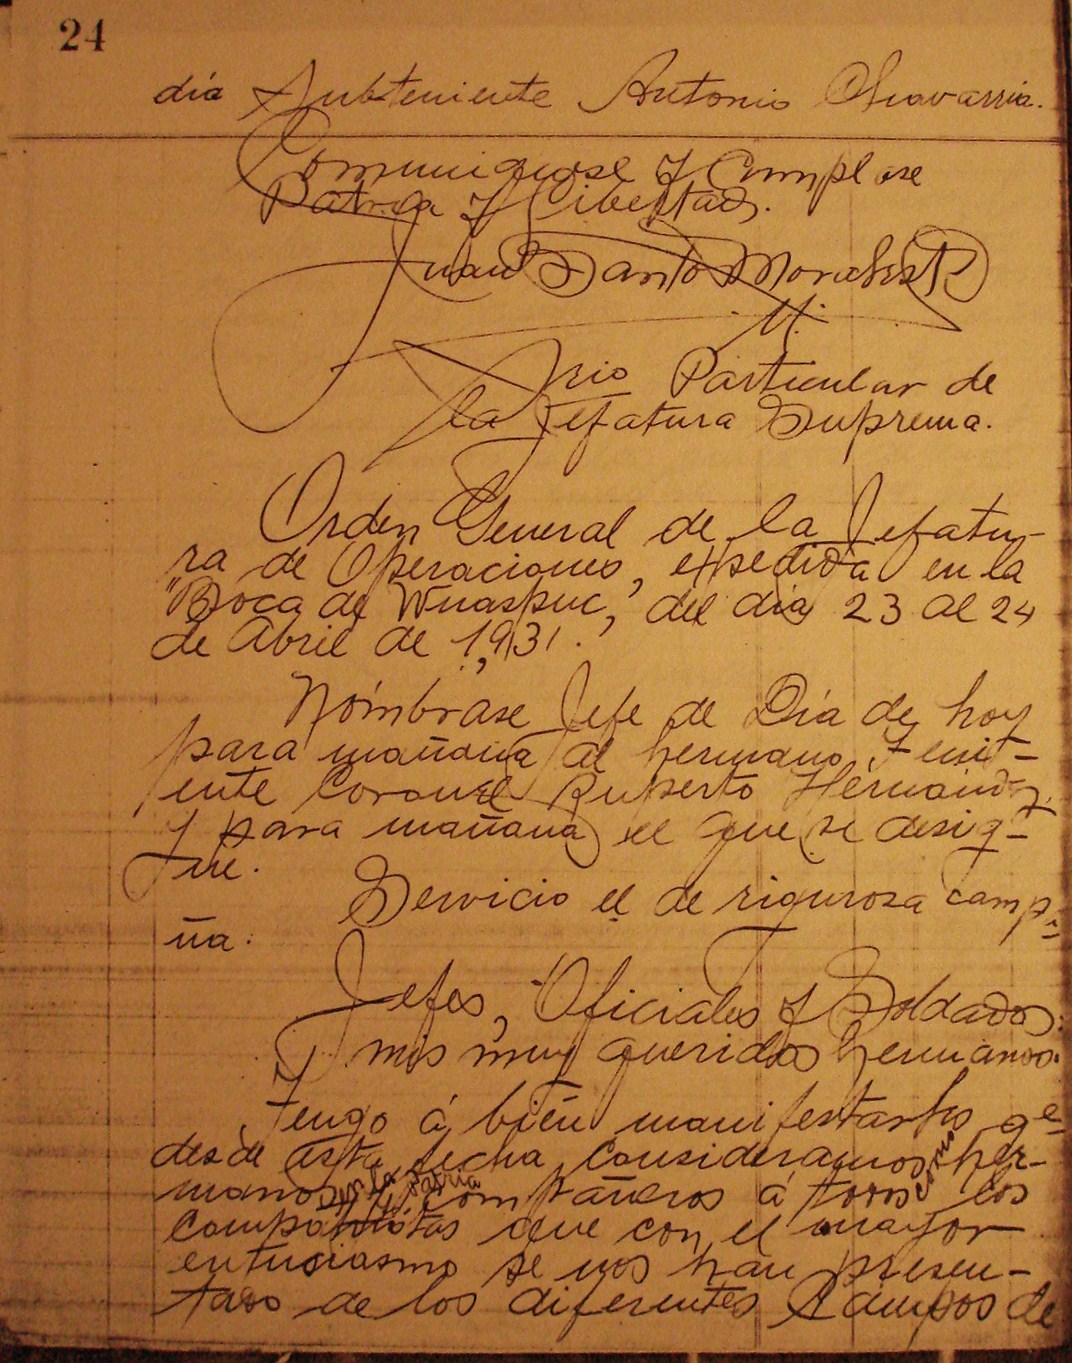 24
día Subteniente Antonio Chavarria.
Comuniquese y Cumplase
Patria y Libertad.
Juan Santo Morales
M.
Srio Particular de
la Jefatura Suprema.
Orden General de la Jefatu-
ra de Operaciones, expedida en la
"Boca de Wuaspuc," del dia 23 al 24
de Abril de 1,931.
Nómbrase Jefe de Día de hoy
para mañana al hermano Teni-
ente Coronel Ruperto Hérnandez,
y para mañana el que se desig-
ne.
Servicio el de rigurosa campa-
ña.
Jefes, Oficiales y Soldados
mis muy queridos hermanos.
Tengo á bién manifestarles qe
desde esta fecha consideramos como her-
manos en la Patria y compañeros á todos los
compatriotas que con el mayor
entusiasmo se nos han presen-
tado de los diferentes Campos de